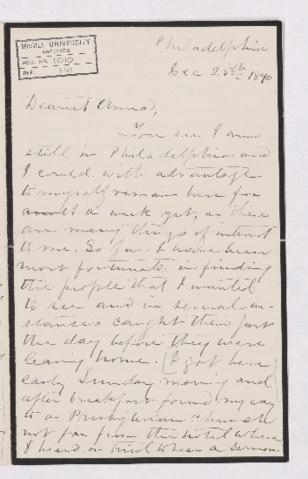 McGILL UNIVERSITY
ARCHIVES
ACC. NO. 1010
REF.
Philadelphia
Dec 25th 1890
Dearest Anna,
You see I am
still in Philadelphia and
I could with advantage
to myself remain here for
a week yet, as there
are many things of interest
to me. So far I have been
most fortunate in finding
the people that I wanted
to see and in several in-
stances caught them just
the day before they were
leaving home. I got here
early Sunday morning and
after breakfast found my way
to a Presbyterian Church
not far from the hotel where
I heard or tried to hear a sermon